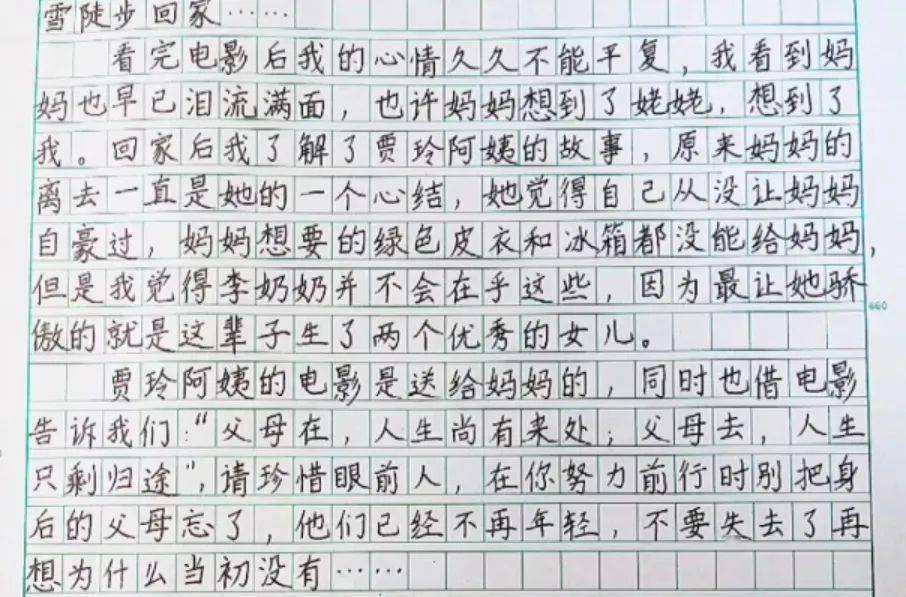 雪陡步回家……
看完电影后我的心情久久不能平复，我看到妈
妈也早已泪流满面，也许妈妈想到了姥姥，想到了
我。回家后我了解了贾玲阿姨的故事，原来妈妈的
离去一直是她的一个心结，她觉得自己从没让妈妈
自豪过，妈妈想要的绿色皮衣和冰箱都没能给妈妈，
但是我觉得李奶奶并不会在乎这些，因为最让她骄
傲的就是这辈子生了两个优秀的女儿。
660
贾玲阿姨的电影是送给妈妈的，同时也借电影
告诉我们：“父母在，人生尚有来处；父母去，人生
只剩归途”，请珍惜眼前人，在你努力前行时别把身
后的父母忘了，他们已经不再年轻，不要失去了再
想为什么当初没有……